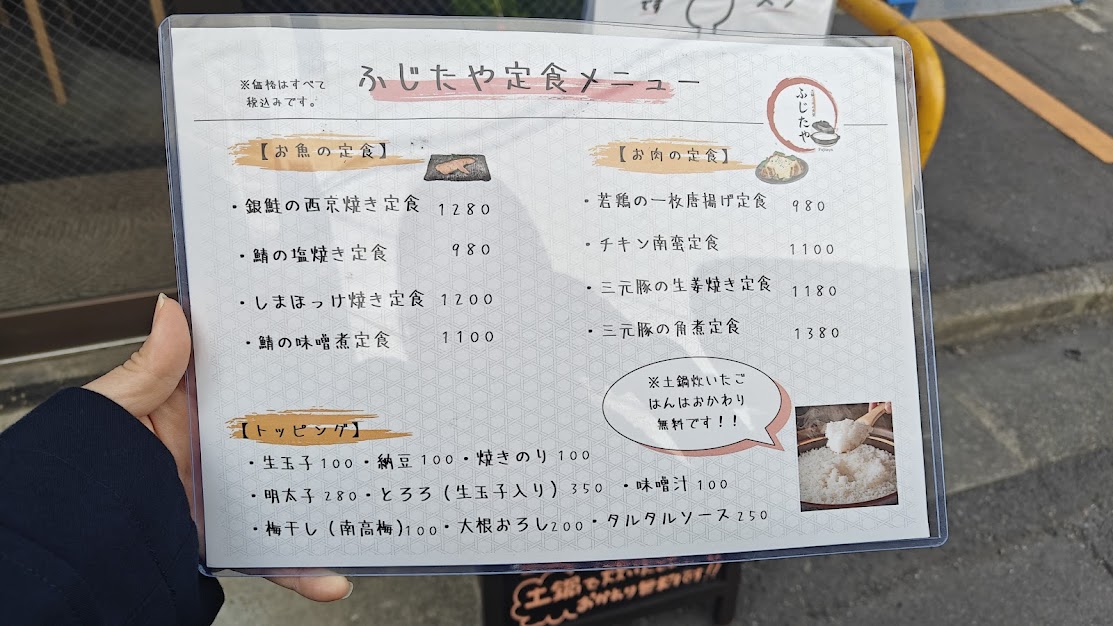 です
※価格はすべて
税込みです。
ふじたや定食メニュー
ふじたや
Fujitaya
【お魚の定食】
・銀鮭の西京焼き定食 1280
・鯖の塩焼き定食 980
・しまほっけ焼き定食 1200
・鯖の味噌煮定食 1100
【お肉の定食】
・若鶏の一枚唐揚げ定食 980
・チキン南蛮定食 1100
・三元豚の生姜焼き定食 1180
・三元豚の角煮定食 1380
※土鍋炊いたご
はんはおかわり
無料です！！
【トッピング】
・生玉子 100・納豆 100・焼きのり 100
・明太子 280・とろろ（生玉子入り）350 ・味噌汁 100
・梅干し（南高梅)100・大根おろし200・タルタルソース 250
土鍋で
おかわり